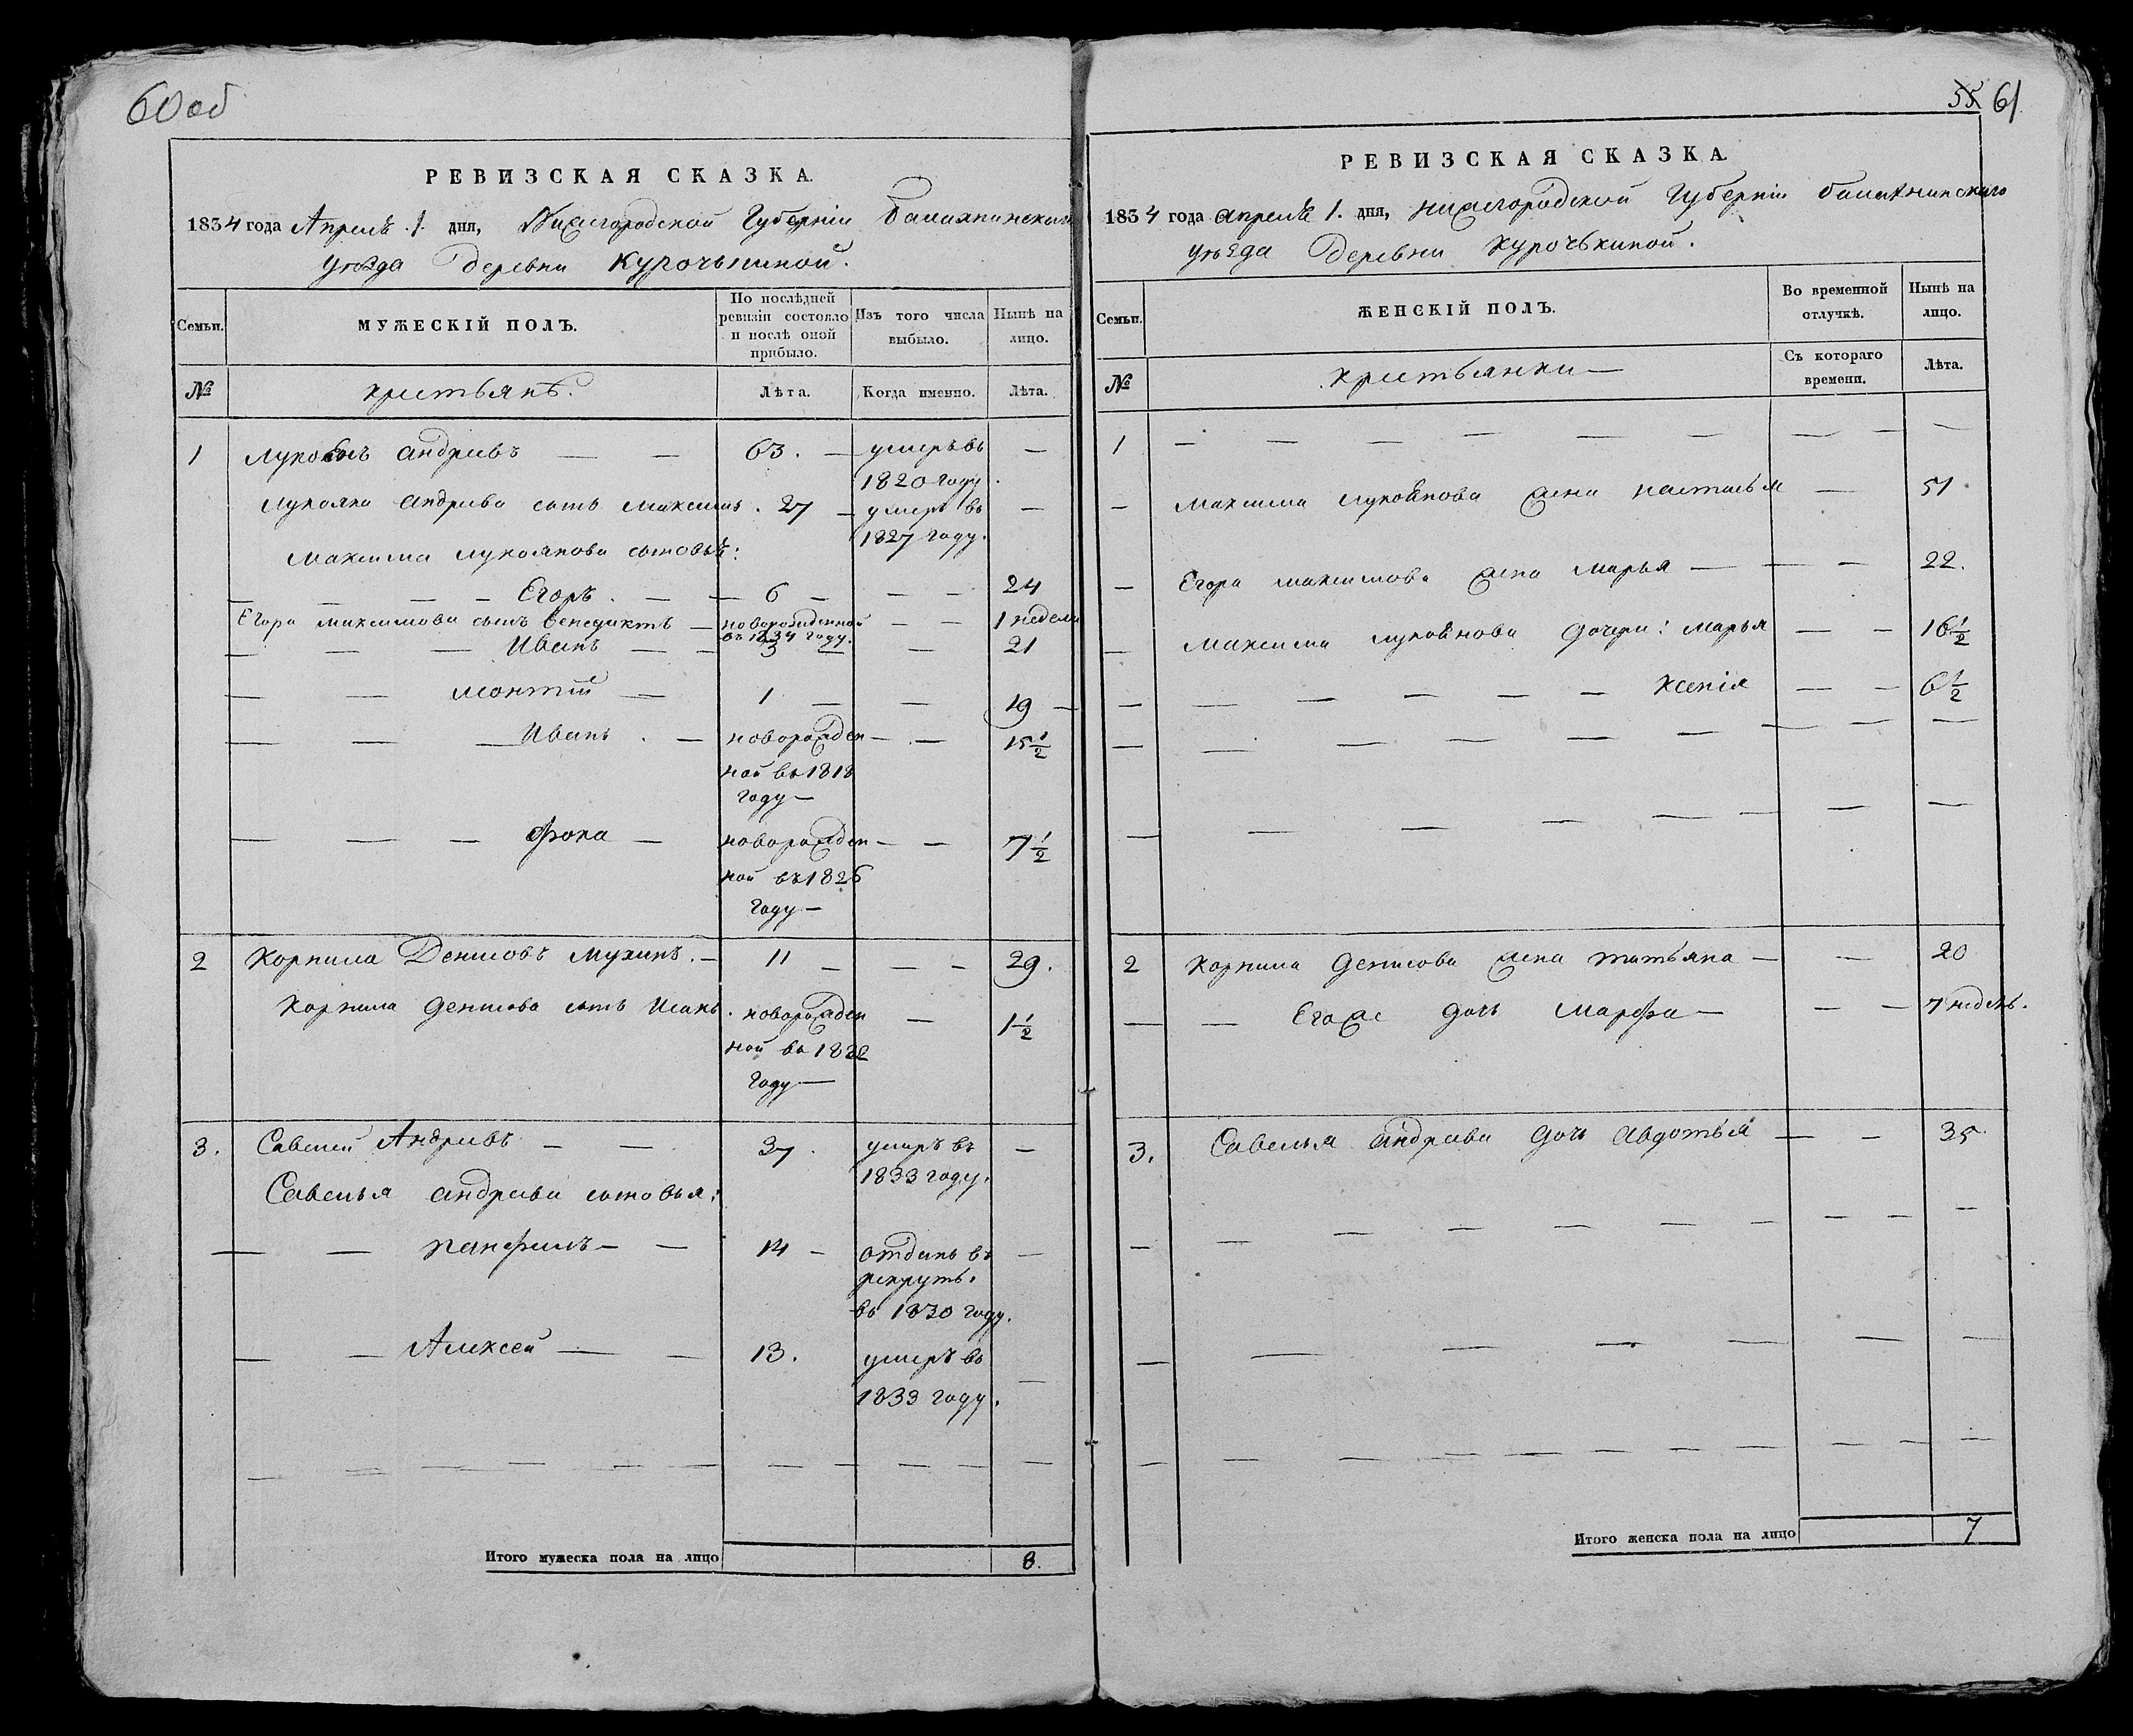 60 об
РЕВИЗСКАЯ СКАЗКА.
1834 года Апрель 1. дня, Нижегородской Губерніи Балахнинскаго
уѣзда Деревни Курочькиной.
Семьи.
МУЖЕСКІЙ ПОЛЪ.
По послѣдней ревизіи состояло и послѣ оной прибыло.
Изъ того числа выбыло.
Нынѣ на лицо.
№
Крестьянъ.
Лѣта.
Когда именно.
Лѣта.
1 Лукоянъ Андревъ — — 63. — умеръ въ 1820 году. —
Лукояна Андрева сынъ Максимъ. 27 — умеръ въ 1827 году. —
Максима Лукоянова сыновья:
— — — — Егоръ. — — 6 — — — 24
Егора Максимова сынъ Венедиктъ — новорожденной въ 1834 году. — — 1 недели
— — — Иванъ — — 3 — — 21
— — Монтій — 1 — — 19 —
— — — Иванъ. — новорожден— — 15 1/2
ной въ 1818
году —
— — — Фока — новорожден— — 7 1/2
ной въ 1826
году —
2 Корнила Денисовъ Мухинъ. — 11 — — — 29.
Корнила Денисова сынъ Исакъ. новорожден — 1 1/2
ной въ 1832
году —
3. Савелей Андревъ — — 37. умеръ въ —
1833 году.
Савелья Андрева сыновья:
— — Панфилъ — — 14 — отданъ въ —
рекруты.
въ 1830 году.
— — Алексей — — 13. умеръ въ —
1833 году.
Итого мужеска пола на лицо 8.
55 61
РЕВИЗСКАЯ СКАЗКА.
1834 года апреля 1. дня, Нижегородской Губерніи Балахнинскаго
уѣзда Деревни Курочькиной.
Семьи.
ЖЕНСКІЙ ПОЛЪ.
Во временной отлучкѣ.
Нынѣ на лицо.
№
Крестьянки —
Съ котораго времени.
Лѣта.
1 — — — — — — — — —
— Максима Лукоянова жена Настасья — 51.
— Егора Максимова жена Марья — — — 22.
— Максима Лукоянова дочери: Марья — — 16 1/2
— — — — — — Ксенія — — 6 1/2
2 Корнила Денисова жена Татьяна — — 20
— — Егоже дочь Марфа — — — 7 недель.
3. Савелья Андрева дочь Авдотья — — 35.
Итого женска пола на лицо 7